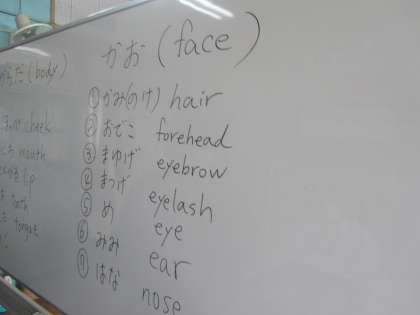 かお (face)
①かみ(のけ) hair
②おでこ forehead
③まゆげ eyebrow
④まつげ eyelash
⑤め eye
⑥みみ ear
⑦はな nose
からだ (body)
cheek
mouth
lip
tooth
tongue